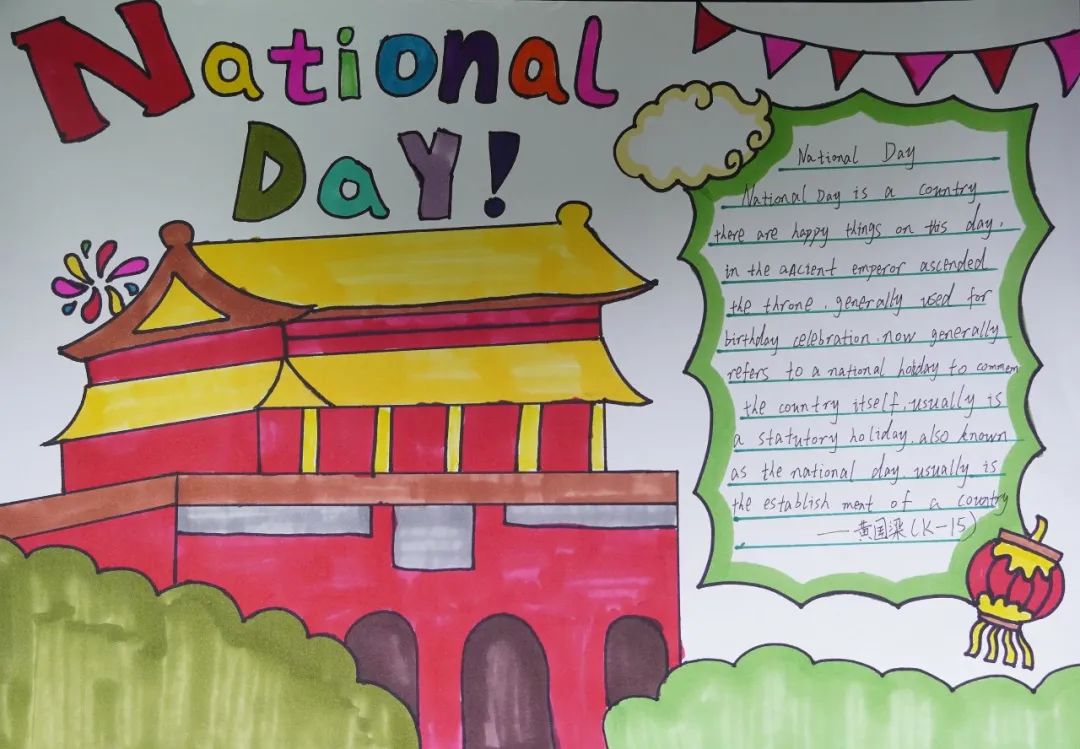 National
Day!
National Day
National Day is a country
there are happy things on this day,
in the ancient emperor ascended
the throne, generally used for
birthday celebration, now generally
refers to a national holiday to commem
the country itself, usually is
a statutory holiday, also known
as the national day usually is
the establish ment of a country
——黄国梁(K-15)